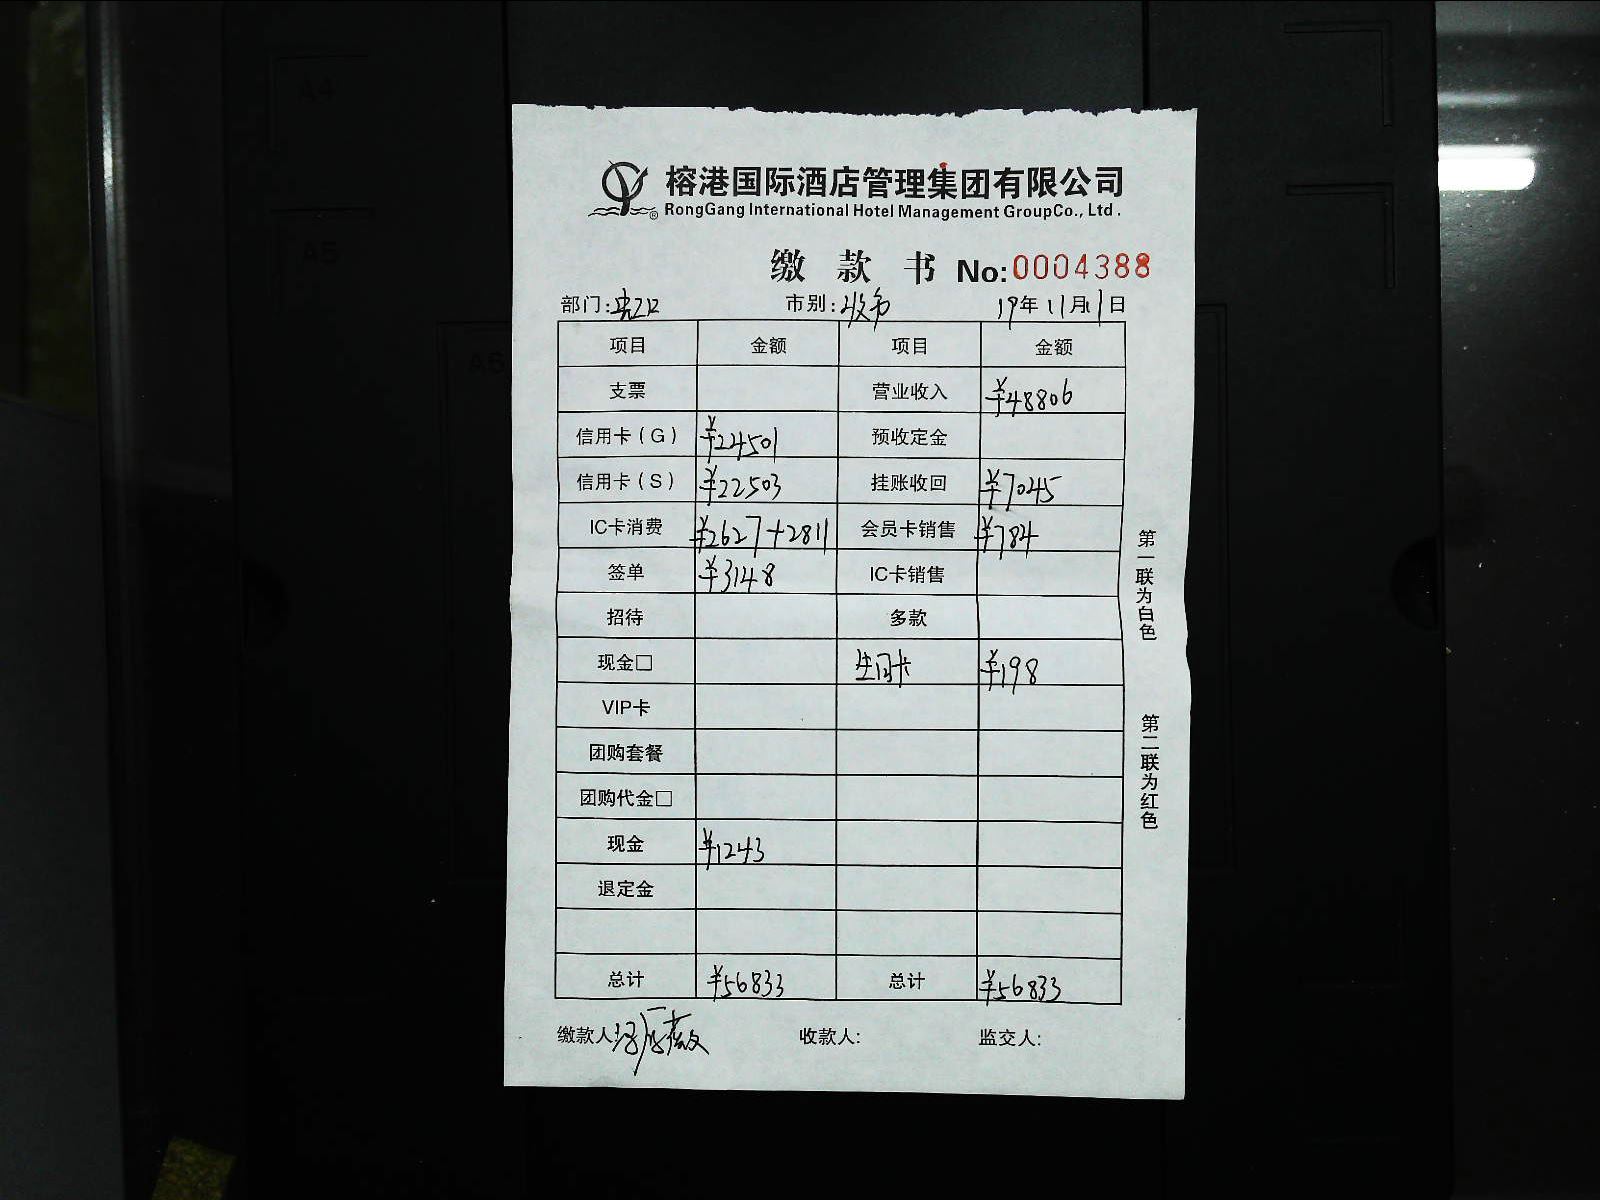 榕港国际酒店管理集团有限公司
RongGang International Hotel Management GroupCo., Ltd.
缴 款 书 No:0004388
部门: 市别: 收市 19年11月1日
项目 金额 项目 金额
支票 营业收入 ¥48806
信用卡(G) ¥24501 预收定金
信用卡(S) ¥22503 挂账收回 ¥7045
IC卡消费 ¥2627+2811 会员卡销售 ¥784
签单 ¥3148 IC卡销售
招待 多款
现金□ 生日卡 ¥198
VIP卡
团购套餐
团购代金□
现金 ¥1243
退定金
总计 ¥56833 总计 ¥56833
缴款人: 收款人: 监交人:
第一联为白色
第二联为红色
A4
A5
A6